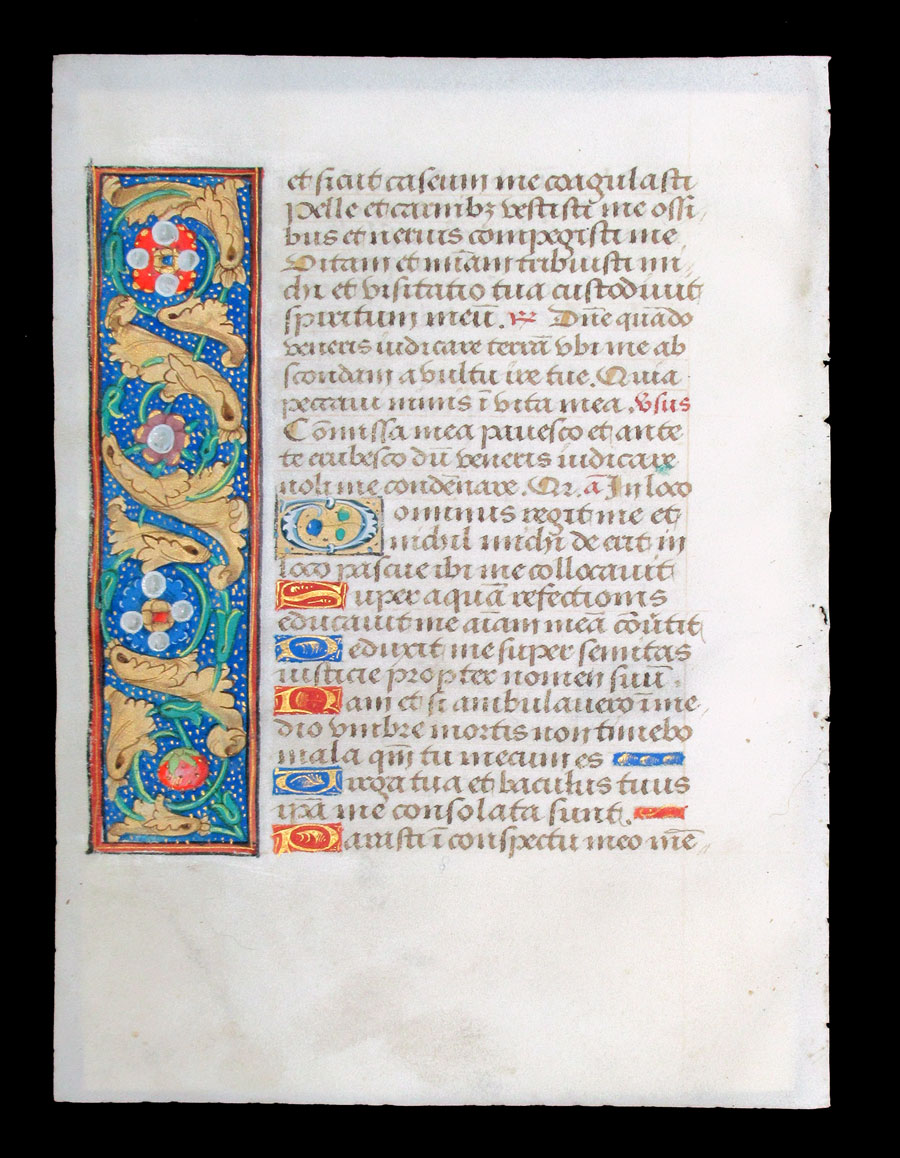 et sicut caseum me coagulasti
Pelle et carnibꝫ vestisti me ossi
bus et neruis compegisti me
Vitam et miam̃ tribuisti mi
chi et visitatio tua custodiuit
spiritum meũ. ꝶ Dñe quãdo
veneris iudicare terrã vbi me ab
scondam a vultu ire tue. Quia
peccaui nimis ĩ vita mea. Vsus
Cõmissa mea pauesco et ante
te erubesco dũ veneris iudicare
noli me condẽnare. Qr. a In loco
Dominus regit me et
nichil michi de erit in
loco pascue ibi me collocauit
Super aquã refectionis
educauit me aĩam meã cõuertit
Deduxit me super semitas
iusticie propter nomen suũ.
Nam et si ambulauero ĩ me
dio vmbre mortis non timebo
mala qm̃ tu mecum es
Virga tua et baculus tuus
ip̃a me consolata sunt.
Parasti ĩ conspectu meo mẽ